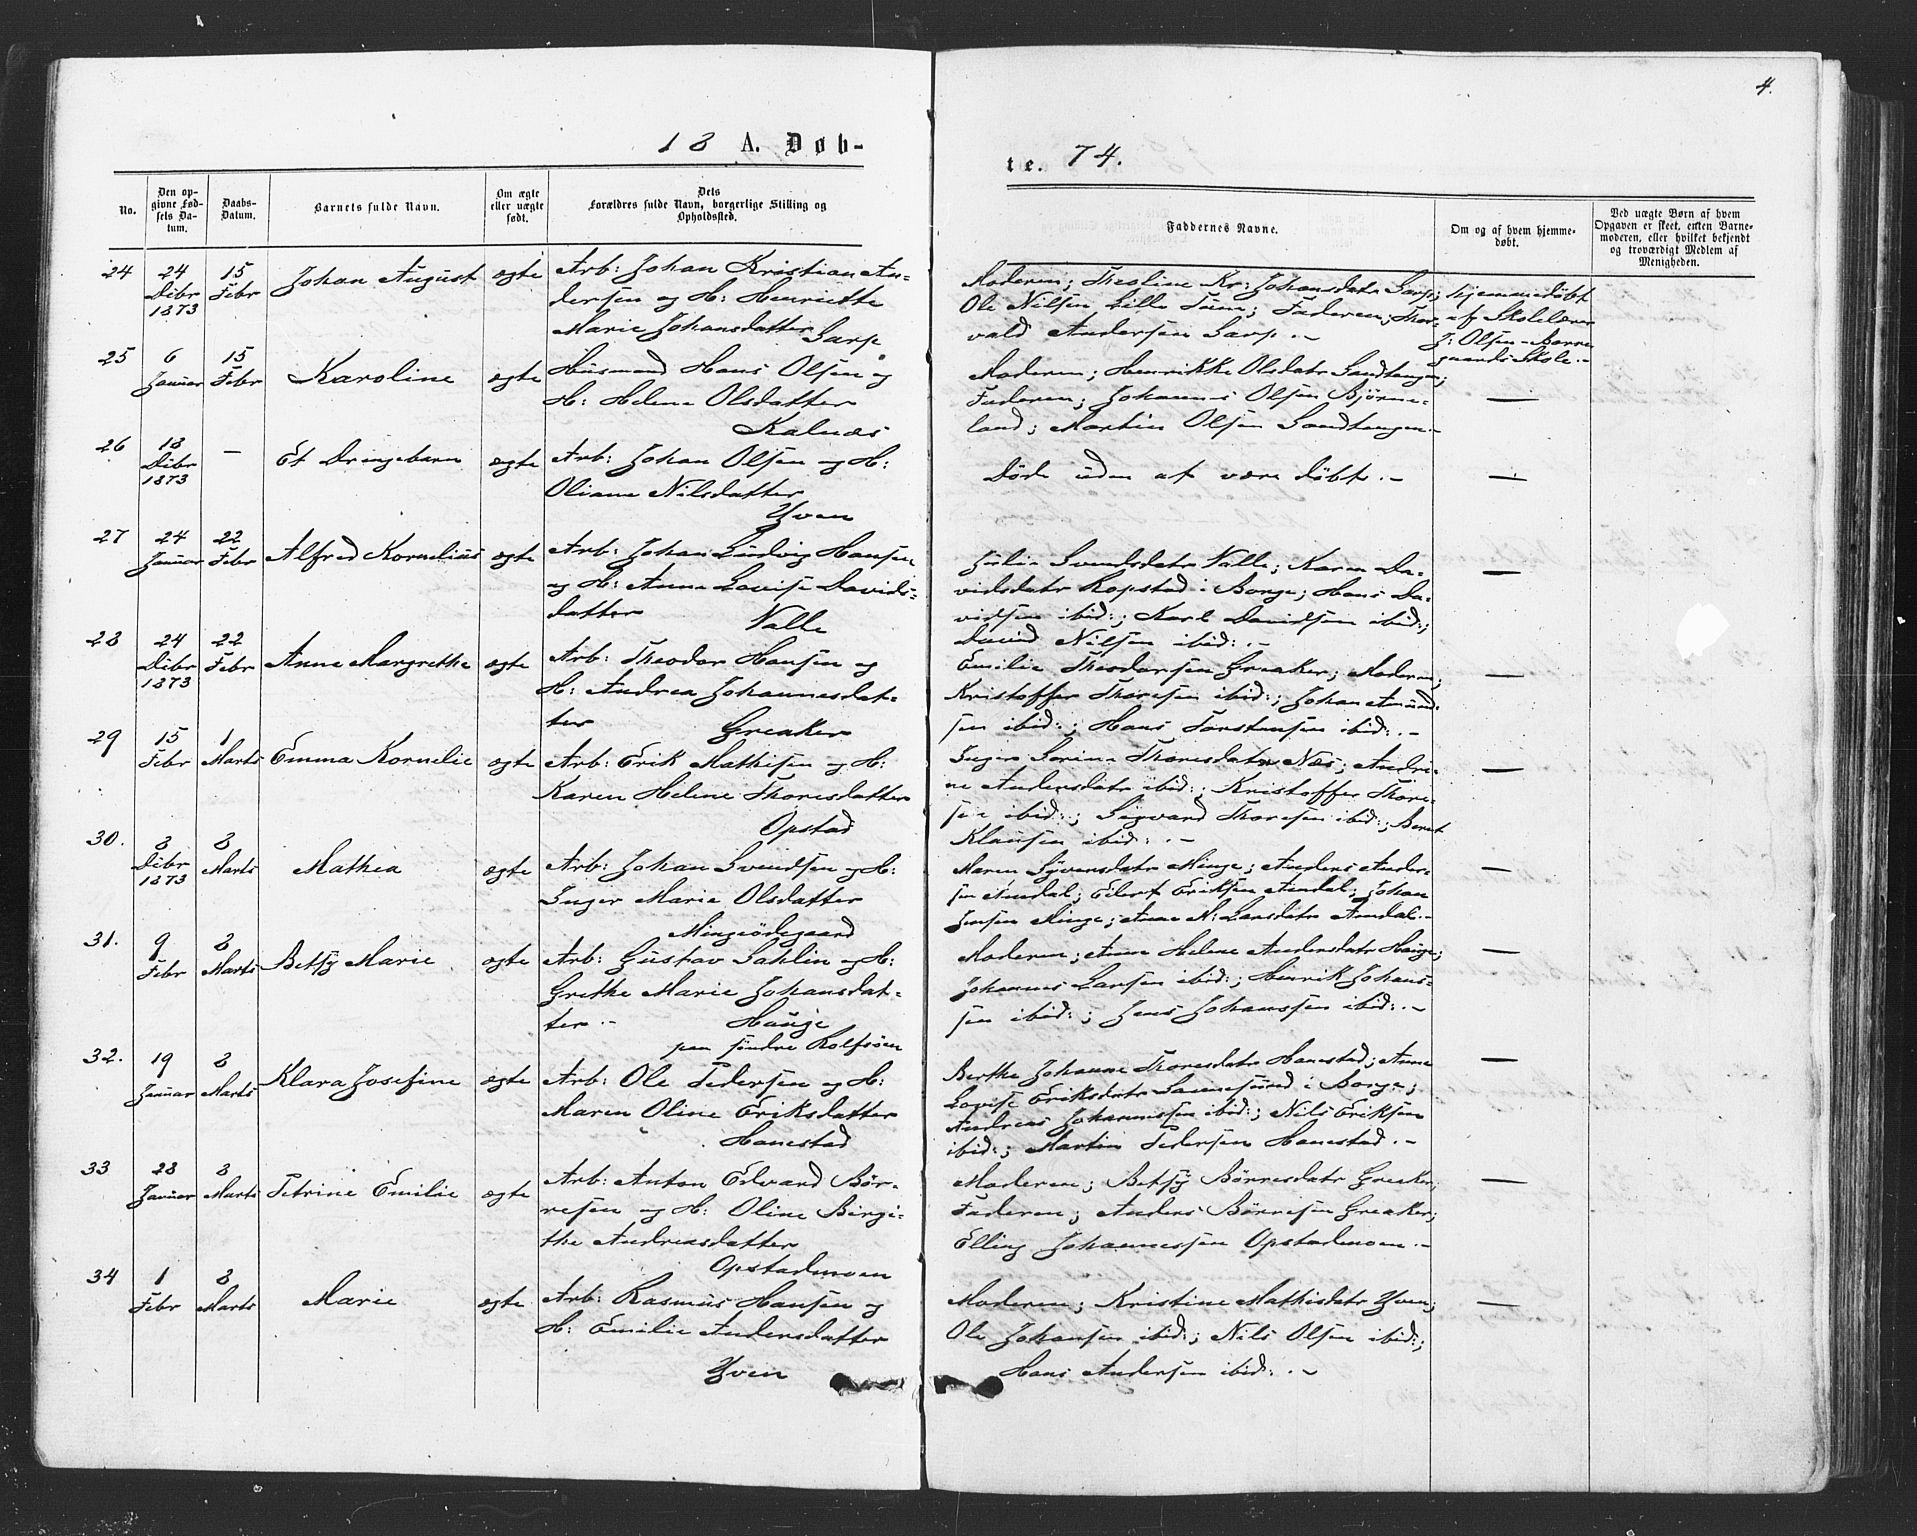 4.
18 A. Døb-
te. 74.
No.
Den op-
givne Fød-
sels Da-
tum.
Daabs-
Datum.
Barnets fulde Navn.
Om ægte
eller uægte
født.
Dets
Forældres fulde Navn, borgerlige Stilling og
Opholdssted.
Faddernes Navne.
Om og af hvem hjemme-
døbt.
Ved uægte Børn af hvem
Opgaven er skeet, enten Barne-
moderen, eller hvilket bekjendt
og troværdigt Medlem af
Menigheden.
24
24 Dcbr 1873
15 Febr
Johan August
ægte
Arb: Johan Kristian An-
dersen og H: Henriette
Marie Johansdatter
Sarp
Moderen; Theoline Kr: Johansdatr Sarp;
Ole Nilsen Lille Tune; Faderen; Thor-
vald Andersen Sarp.-
hjemmedøbt
af Skolelærer
J: Olsen-Borre-
gaards Skole.-
25
6 Januar
15 Febr
Karoline
ægte
Husmand Hans Olsen og
H: Helene Olsdatter
Kalnæs
Moderen; Henrikke Olsdatr Sandtangen;
Faderen; Johannes Olsen Bjørne-
land; Martin Olsen Sandtangen.-
—
26
18 Dcbr 1873
—
Et Drengebarn
ægte
Arb: Johan Olsen og H:
Oliane Nilsdatter
Yven
Døde uden at være døbt.-
—
27
24 Januar
22 Febr
Alfred Kornelius
ægte
Arb: Johan Ludvig Hansen
og H: Anne Lovise Davids-
datter
Valle
Julie Svendsdatr Valle; Karen Da-
vidsdatr Ropstad i Borge; Hans Da-
vidsen ibid:; Karl Davidsen ibid:;
David Nilsen ibid:.-
—
28
24 Dcbr 1873
22 Febr
Anne Margrethe
ægte
Arb: Theodor Hansen og
H: Andrea Johannesdat-
ter
Greaker
Emilie Theodorsen Greaker; Moderen;
Kristoffer Thoresen ibid:; Johan Amund-
sen ibid:; Hans Torstensen ibid:.-
—
29
15 Febr
1 Marts
Emma Kornelie
ægte
Arb: Erik Mathisen og H:
Karen Helene Thoresdatter
Opstad
Inger Sorine Thoresdatr Næs; Andri-
ne Andersdatr ibid:; Kristoffer Thore-
sen ibid:; Sigvard Thoresen ibid:; Bernt
Klausen ibid:.-
—
30.
8 Dcbr 1873
8 Marts
Mathea
ægte
Arb: Johan Svendsen og H:
Inger Marie Olsdatter
Mingeødegaard
Maren Syversdatr Minge; Anders Ander-
sen Aandal; Edert Eriksen Aandal; Johan
Jensen Minge; Anne M: Larsdatr Aandal.-
—
31.
9 Febr
8 Marts
Betsy Marie
ægte
Arb: Gustav Sahlin og H:
Grethe Marie Johansdat-
ter.-
Hauge
paa søndre Rolfsøen
Moderen; Anne Helene Andersdatr Hauge;
Johannes Larsen ibid:; Henrik Johans-
sen ibid:; Jens Johanssen ibid:.-
—
32.
19 Januar
8 Marts
Klara Josefine
ægte
Arb: Ole Pedersen og H:
Maren Oline Eriksdatter
Hanestad
Berthe Johanne Thoresdatr Hanestad; Anne
Lovise Eriksdatr Sannesund i Borge;
Andreas Johannessen ibid:; Nils Eriksen
ibid:; Martin Pedersen Hanestad.-
—
33
28 Januar
8 Marts
Petrine Emilie
ægte
Arb: Anton Edvard Bør-
resen og H: Oline Birgi-
the Andreasdatter
Opstadmoen
Moderen; Betsy Børresdatr Greaker;
Faderen; Anders Børresen Greaker;
Elling Johannessen Opstadmoen.-
—
34
1 Febr
8 Marts
Marie
ægte
Arb: Rasmus Hansen og
H: Emilie Andersdatter
Yven
Moderen; Kristine Mathisdatr Yven;
Ole Johansen ibid:; Nils Olsen ibid:;
Hans Andersen ibid:.-
—